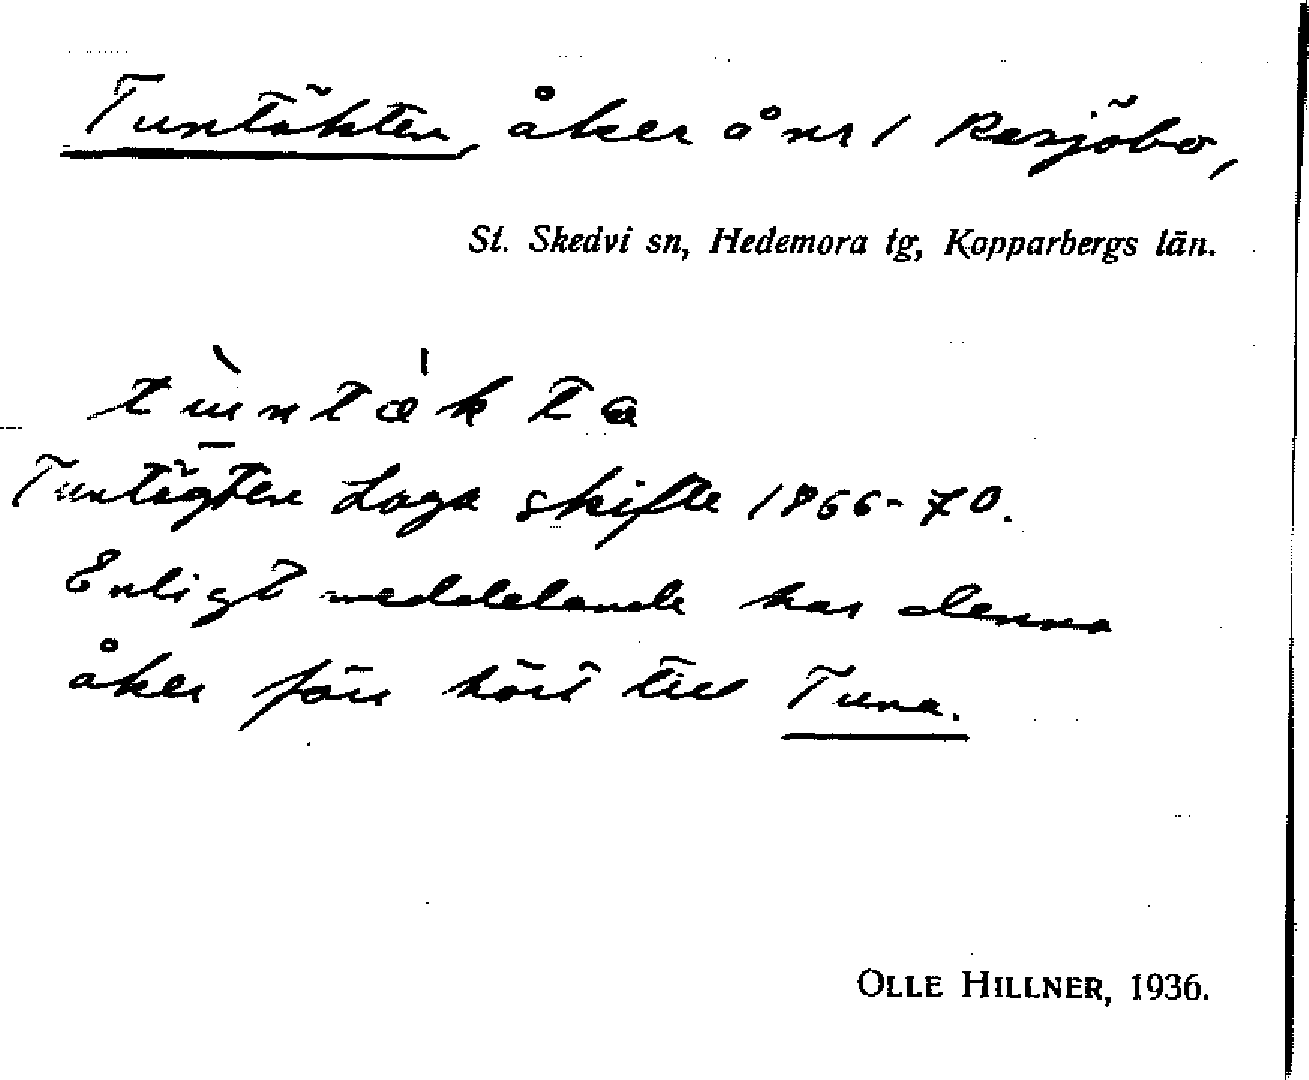 Tuntäkten, åker å nr 1 Resjöbo,
St. Skedvi sn, Hedemora tg, Kopparbergs län.
tùntækta
Tuntägten Laga skifte 1866-70.
Enligt meddelande har denna
åker förr hört till Tuna.
OLLE HILLNER, 1936.